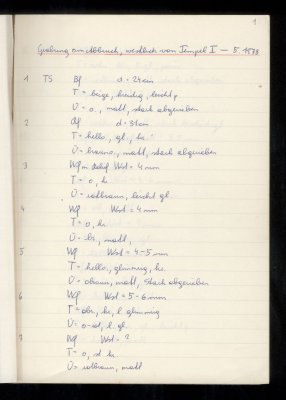 1
Grabung am Abbruch, westlich von Tempel I – 5. 1978
1 TS Bf d = 24 cm
T = beige, kreidig, leicht p
Ü = o, matt, stark abgerieben
2 Bf d = 31 cm
T = hello, gl., kr.
Ü = brauno, matt, stark abgerieben
3 Wf m. Wst = 4 mm
T = o, kr.
Ü = rotbraun, leicht gl.
4 Wf Wst = 4 mm
T = o, kr.
Ü = br., matt,
5 Wf Wst = 4-5 mm
T = hello, glimmrig, kr.
Ü = obraun, matt, stark abgerieben
6 Wf Wst = 5-6 mm
T = obr., kr, l. glimmrig
Ü = o-rot, l. gl.
7 Wf Wst = ?
T = o, st. kr.
Ü = rotbraun, matt